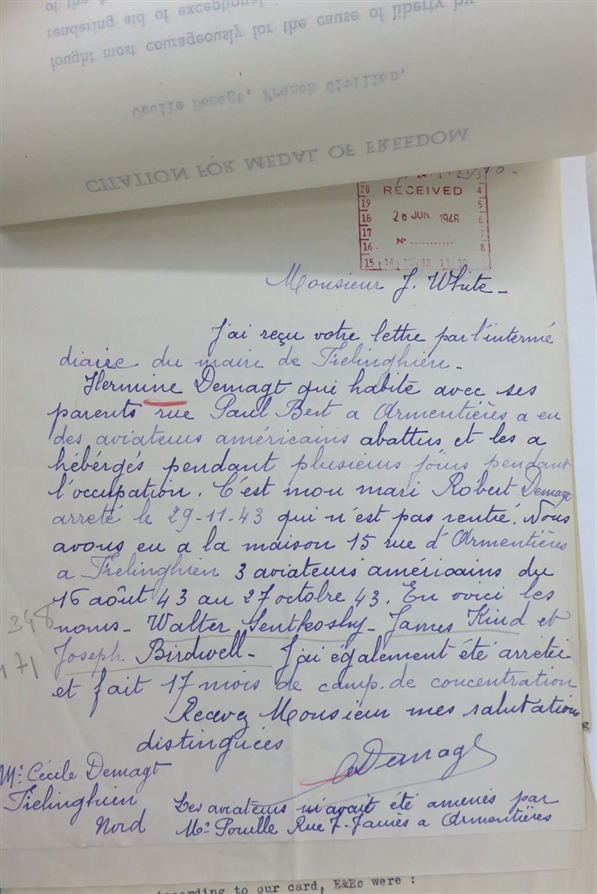 of the
rendering aid of exceptional
fought most courageously for the cause of liberty by
Cecile Demagt, French Civilian,
CITATION FOR MEDAL OF FREEDOM
20 RECEIVED 4
19 5
18 28 JUN. 1946 6
17
16 N° ........... 8
15 14 13 12
Monsieur J. White -
J'ai reçu votre lettre par l'intermé
diaire du maire de Frelinghien -
Hermine Demagt qui habite avec ses
parents rue Paul Bert a Armentières a eu
des aviateurs américains abattus et les a
hébérgés pendant plusieurs jours pendant
l'occupation. C'est mon mari Robert Demagt
arreté le 29-11-43 qui n'est pas rentré. Nous
avons eu a la maison 15 rue d'Armentières
a Frelinghien 3 aviateurs américains du
16 août 43 au 27 octobre 43. En voici les
noms - Walter - James et
Joseph Birdwell - J'ai également été arretée
et fait 17 mois de camp. de concentration
Recevez Monsieur mes salutations
distinguées
Demagt
Me Cécile Demagt
Frelinghien
Nord
Les aviateurs m'avait été amenés par
Mr Pouille Rue J. Jaurès a Armentières
348
171
according to our card, E&Es were :